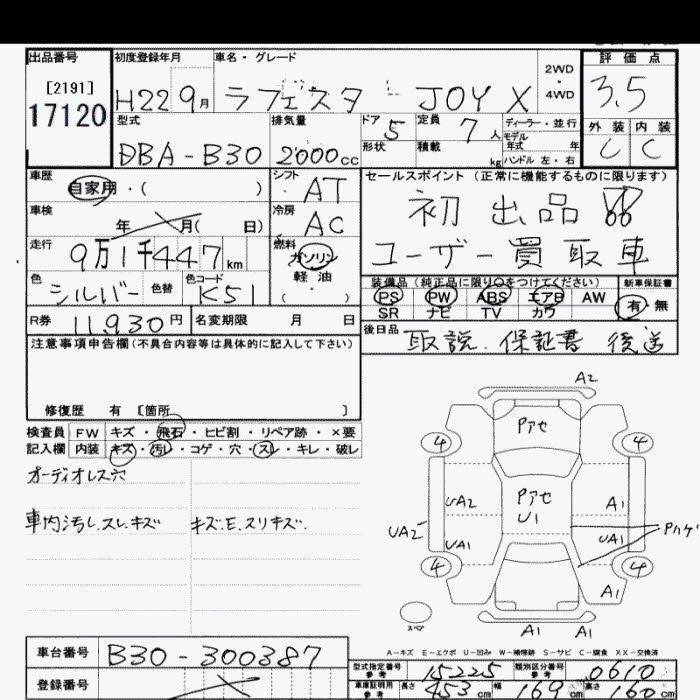 出品番号 初度登録年月 車名・グレード 2WD・4WD 評価点
[2191]
17120 H22 9月 ラフェスタ JOY X 3.5
型式 排気量 ドア 5 定員 7人 ディーラー・並行 外装 内装
DBA-B30 2000cc 形状 積載 kg モデル年式 年 ハンドル 左・右 C C
車歴 自家用・( ) シフト AT セールスポイント(正常に機能するものに限ります)
車検 年 月( 日) 冷房 AC 初出品!!
走行 9万1千447km 燃料 ガソリン 軽・油 ( ) ユーザー買取車
色 シルバー 色替 色コード K51 装備品(純正品に限り○をつけてください) 新車保証書
PS PW ABS エアB AW 有・無
SR ナビ TV カワ
R券 11,930円 名変期限 月 日 後日品 取説、保証書 後送
注意事項申告欄(不具合内容等は具体的に記入して下さい)
修復歴 有 [箇所 ]
検査員 FW キズ・飛石・ヒビ割・リペア跡・×要
記入欄 内装 キズ・汚レ・コゲ・穴・スレ・キレ・破レ
オーディオレス穴
車内汚レ、スレ、キズ キズ、E、スリキズ、
A2
Pアセ
4 4
Pアセ
UA2 U1 A1
UA2 UA1 UA1 Pハゲ
4 4
A1
スペア A1 A1
A-キズ E-エクボ U-凹み W-補修跡 S-サビ C-腐食 XX-交換済
車台番号 B30-300387 型式指定番号 参考 15225 類別区分番号 参考 0610
登録番号 車庫証明用 参考 長さ 453cm 幅 169cm 高さ 160cm